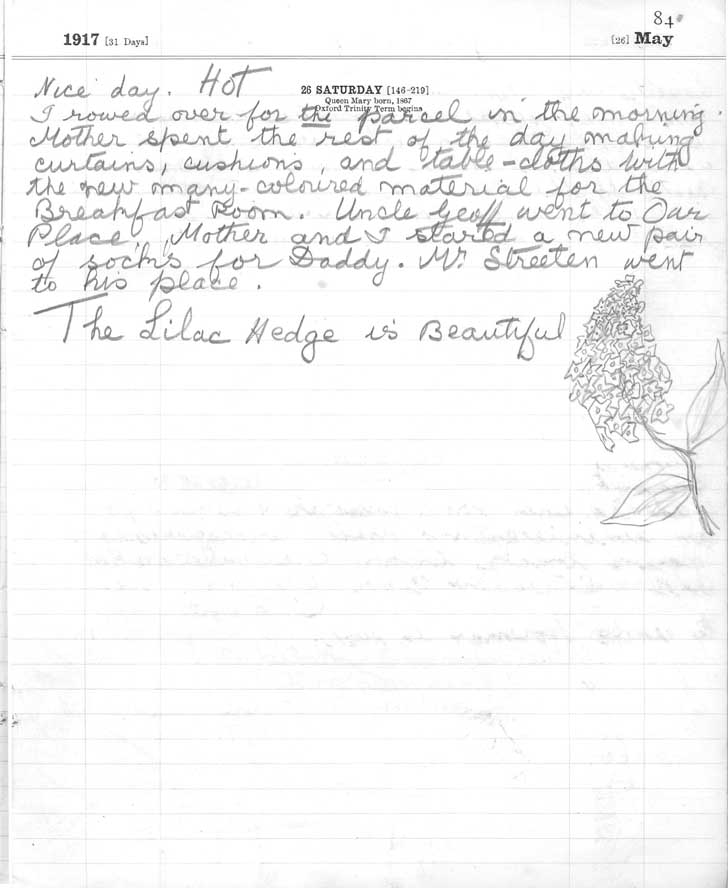 84
1917 [31 Days] [26] May
Nice day. Hot
26 SATURDAY [146-219]
Queen Mary born, 1867
Oxford Trinity Term begins
I rowed over for the parcel in the morning.
Mother spent the rest of the day making
curtains, cushions, and table-cloths with
the new many-coloured material for the
Breakfast Room. Uncle Geoff went to Our
Place. Mother and I started a new pair
of socks for Daddy. Mr Streeten went
to his place.
The Lilac Hedge is Beautiful